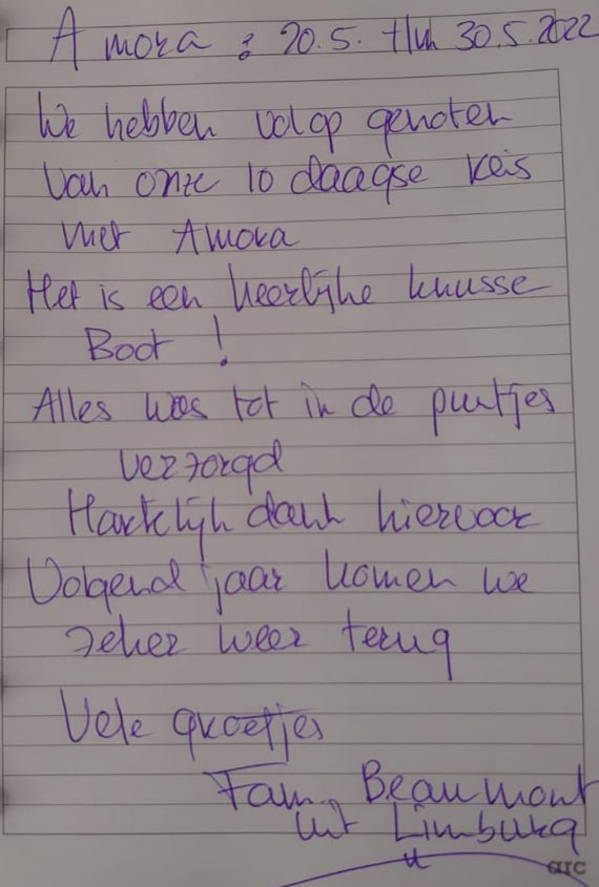 Amora : 20.5. t/m 30.5.2022
We hebben volop genoten
van onze 10 daagse reis
met Amora
Het is een heerlijke knusse
Boot !
Alles was tot in de puntjes
verzorgd
Hartelijk dank hiervoor
Volgend jaar komen we
zeker weer terug
Vele groetjes
Fam. Beaumont
uit Limburg
arc